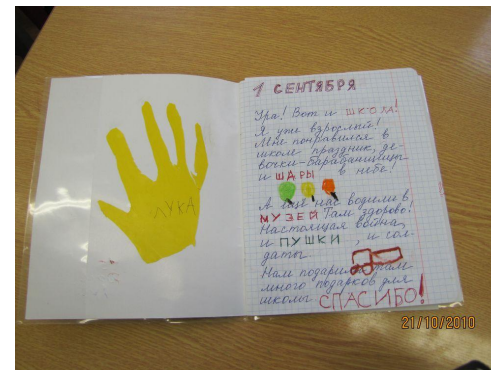 ЛУКА
1 СЕНТЯБРЯ
Ура! Вот и ШКОЛА!
Я уже взрослый!
Мне понравился в
школе праздник, де-
вочки-барабанщицы
и ШАРЫ в небе!
А ещё нас водили в
МУЗЕЙ Там здорово!
Настоящая война,
и ПУШКИ, и сол-
даты
Нам подарили там
много подарков для
школы СПАСИБО!
21/10/2010